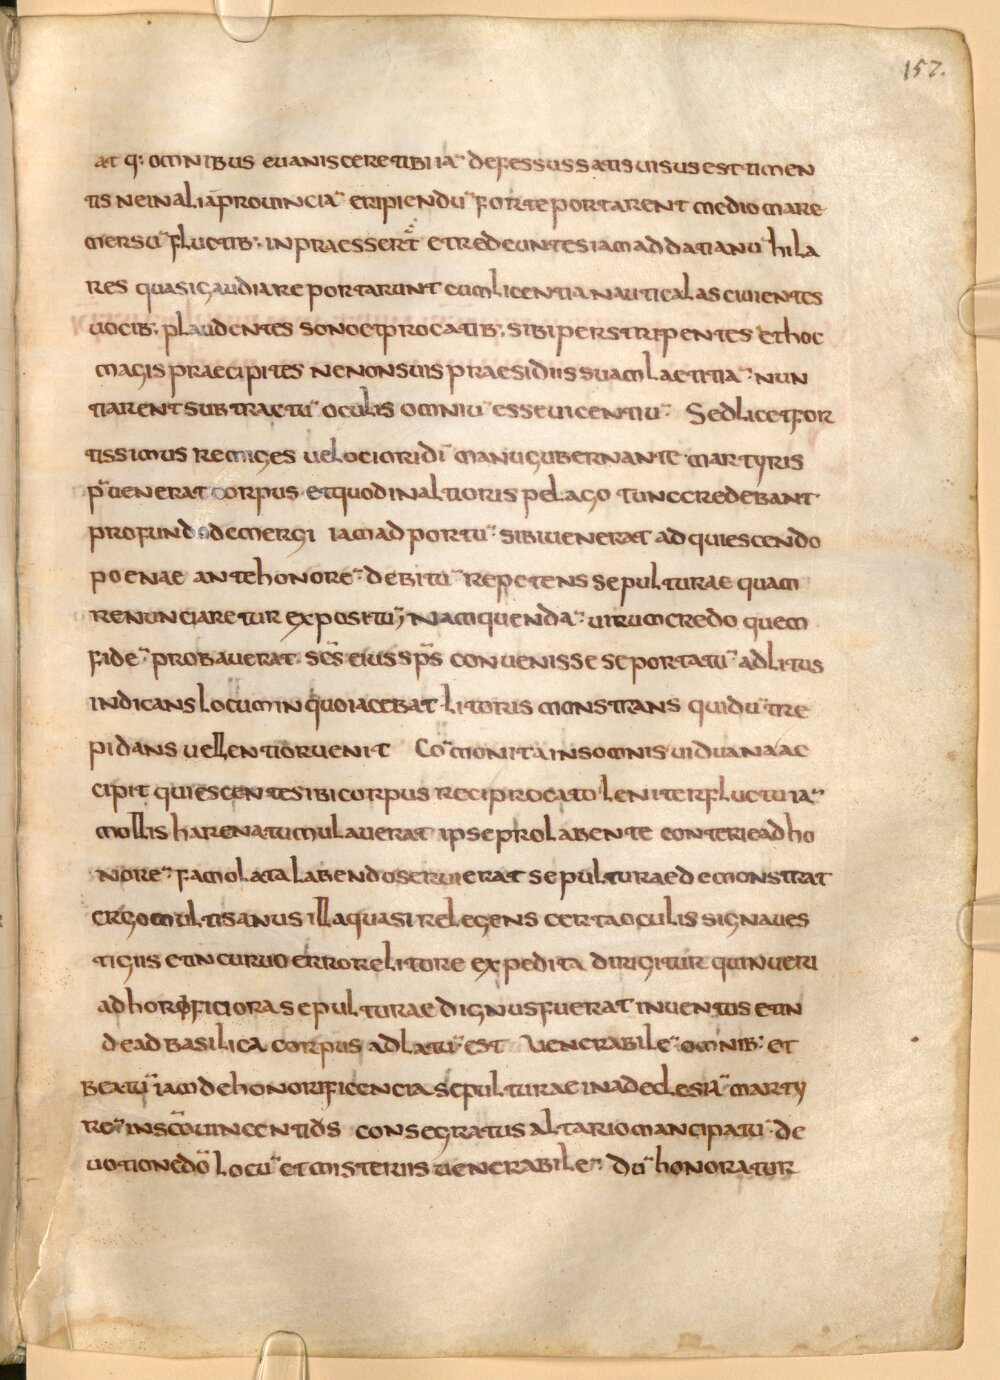 157.
at q: omnibus euaniscere tibi ia¨ defessus satis uisus est timen
tis ne in alia prouincia¨ eripiendu¨ forte portarent medio mare
mersu¨ fluctib: inpraessert et redeuntes iam ad datianu¨ hila
res quasi gaudia reportarunt cum licentia nautica lasciuientes
uocib: plaudentes sono et procatib: sibi perstripentes et hoc
magis praecipites ne non suis praesidiis suam laetitia¨ nun
tiarent subtractu¨ oculis omniu¨ esse uicentiu¨ Sed licet for
tissimus remiges ueloci mri dni manu gubernante martyris
p¨uenerat corpus et quod in altioris pelago tunc credebant
profundo demergi iam ad portu¨ sibi uenerat ad quiescendo
poenae ante honore¨ debitu¨ repetens sepulturae quam
renunciaretur expositu¨ Nam quenda¨ uirum credo quem
fide¨ probauerat scs eius sps conuenisse se portatu¨ ad litus
indicans locum in quo iacebat litoris monstrans qui du¨ tre
pidans uel lentior uenit Co¨monita in somnis uidua naac
cipit quiescentes ibi corpus reciprocato leniter fluctu ia¨
mollis harena tumulauerat ipse prolabente conterie ad ho
nore¨ famolata labendo seruierat sepulturae demonstrat
ergo multis anus illa quasi relegens certa oculis signa ues
tigiis et incuruo errore litore expedita dirigitur quin ueri
ad horoficiora sepulturae dignus fuerat inuentus et in
de ad basilica corpus adlatu¨ est Venerabile¨ omnib: et
beatu¨ iam de honorificencia sepulturae in ad eclesia¨ marty
re¨ in sco uincenti ds consegratus altario mancipatu¨ de
uotione do locu¨ et misteriis uenerabile¨ Du¨ honoratur